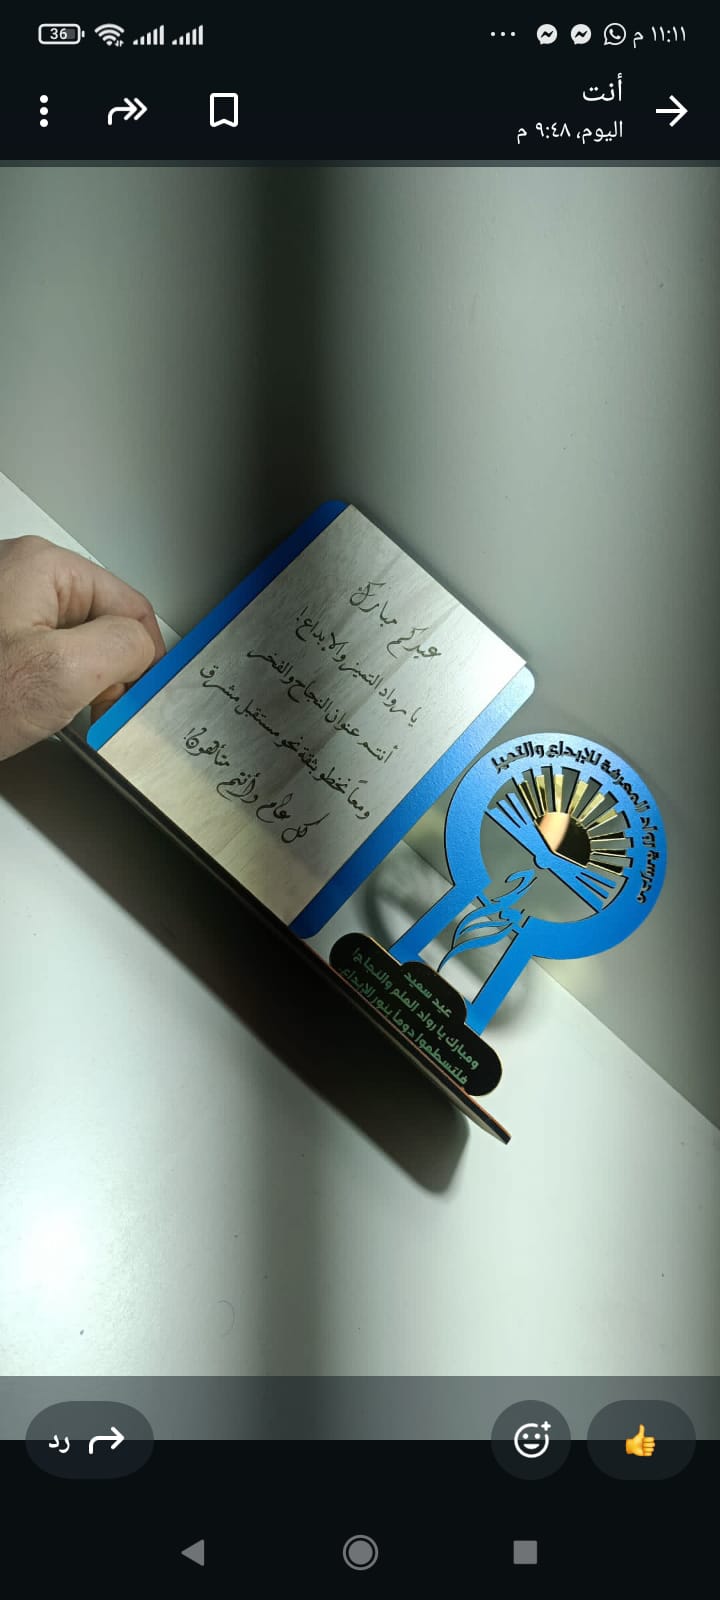 36
١١:١١ م
أنت
اليوم، ٩:٤٨ م
عيدكم مبارك
يا رواد التميز والإبداع!
أنتم عنوان النجاح والفخر
ومعاً نخطو بثقة نحو مستقبل مشرق
كل عام وأنتم متألقون!
المعرفة للإبداع والتميز
عيد سعيد
ومبارك يا رواد العلم والنجاح!
فلتسطعوا دوماً بنور الإبداع.
رد